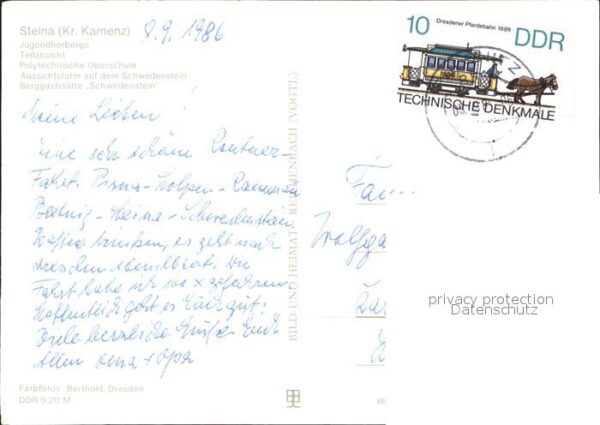 Steina (Kr. Kamenz)
Jugendherberge
Teilansicht
Polytechnische Oberschule
Aussichtsturm auf dem Schwedenstein
Berggaststätte „Schwedenstein"
8.9.1986
Meine Lieben!
eine sehr schöne Rentner-
Fahrt. Pirna-Stolpen-
Steina-Schwedenstein.
Kaffee trinken, es geht nach
Dresden Abendbrot. Die
Fahrt habe ich
Hoffentlich geht es Euch gut.
Viele herzliche Grüße Euch
Allen Oma + Opa
Farbfotos: Berthold, Dresden
DDR 0.20 M
BILD UND HEIMAT REICHENBACH (VOGTL)
10
Dresdener Pferdebahn 1886
DDR
TECHNISCHE DENKMALE
Fam
Wolfga
privacy protection
Datenschutz